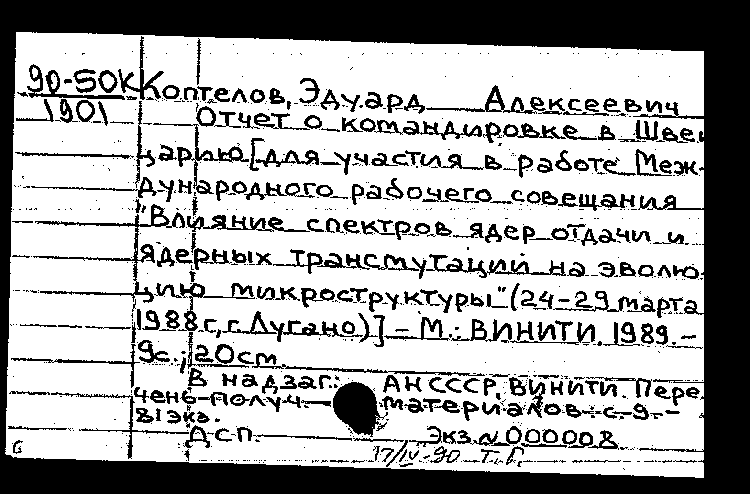 90-50К Коптелов, Эдуард Алексеевич
1901 Отчет о командировке в Швей
царию [для участия в работе Меж-
дународного рабочего совещания
"Влияние спектров ядер отдачи и
ядерных трансмутаций на эволю-
цию микроструктуры" (24-29 марта
1988 г., г. Лугано)] - М.: ВИНИТИ. 1989. -
9с.; 20см.
В надзаг.: АН СССР, ВИНИТИ. Пере
чень получ. материалов: с. 9. -
81 экз.
ДСП. Экз. № 000008
17/IV-90 Т. Г.